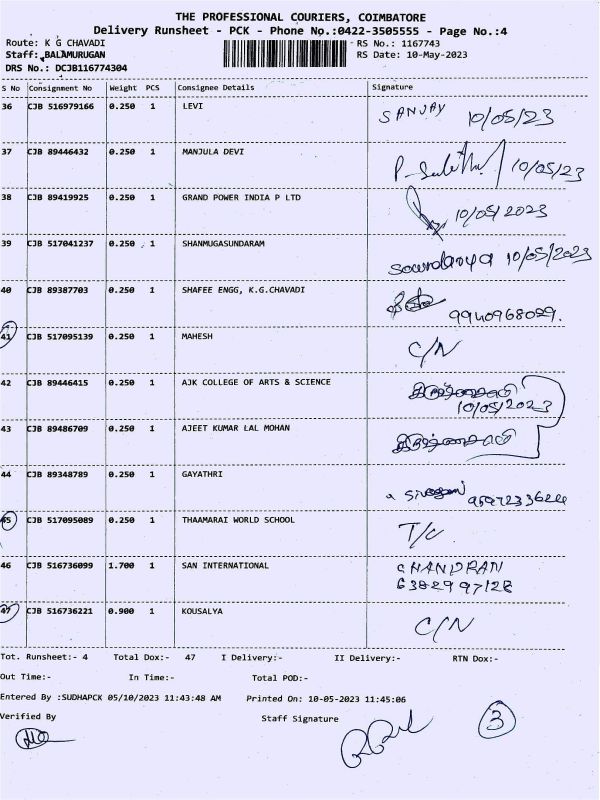 THE PROFESSIONAL COURIERS, COIMBATORE
Delivery Runsheet - PCK - Phone No.:0422-3505555 - Page No.:4
Route: K G CHAVADI RS No.: 1167743
Staff: BALAMURUGAN RS Date: 10-May-2023
DRS No.: DCJB116774304
S No Consignment No Weight PCS Consignee Details Signature
36 CJB 516979166 0.250 1 LEVI SANJAY 10/05/23
37 CJB 89446432 0.250 1 MANJULA DEVI 10/05/23
38 CJB 89419925 0.250 1 GRAND POWER INDIA P LTD 10/05/2023
39 CJB 517041237 0.250 1 SHANMUGASUNDARAM Soundarya 10/05/2023
40 CJB 89387703 0.250 1 SHAFEE ENGG, K.G.CHAVADI
9940968029.
41 CJB 517095139 0.250 1 MAHESH C/N
42 CJB 89446415 0.250 1 AJK COLLEGE OF ARTS & SCIENCE
10/05/2023
43 CJB 89486709 0.250 1 AJEET KUMAR LAL MOHAN
44 CJB 89348789 0.250 1 GAYATHRI
45 CJB 517095089 0.250 1 THAAMARAI WORLD SCHOOL T/C
46 CJB 516736099 1.700 1 SAN INTERNATIONAL CHANDRAN
6382997128
47 CJB 516736221 0.900 1 KOUSALYA C/N
Tot. Runsheet:- 4 Total Dox:- 47 I Delivery:- II Delivery:- RTN Dox:-
Out Time:- In Time:- Total POD:-
Entered By :SUDHAPCK 05/10/2023 11:43:48 AM Printed On: 10-05-2023 11:45:06
Verified By Staff Signature 3